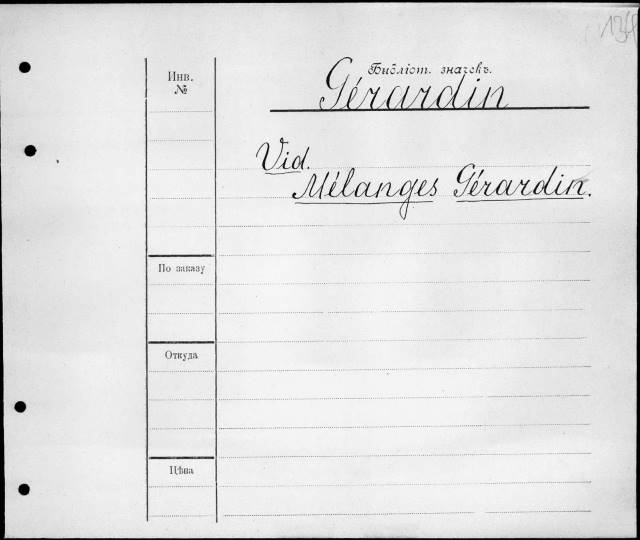 134
Библіот. значекъ.
Gérardin
Инв.
№
Vid.
Mélanges Gérardin.
По заказу
Откуда
Цѣна